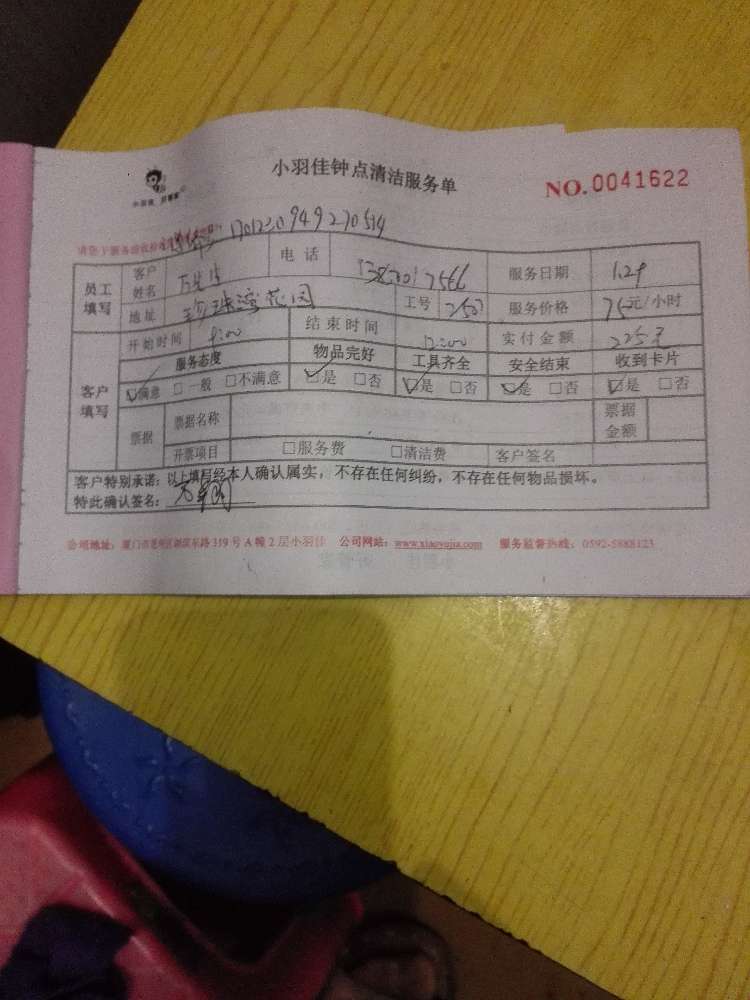 小羽佳钟点清洁服务单
NO.0041622
1701230949270514
员工填写 客户姓名 万先生 电话 服务日期 1.29
地址 珍珠湾花园 工号 服务价格 75元/小时
开始时间 9:00 结束时间 12:00 实付金额 225元
客户填写 服务态度 物品完好 工具齐全 安全结束 收到卡片
☑满意 □一般 □不满意 ☑是 □否 ☑是 □否 ☑是 □否 ☑是 □否
票据 票据名称 票据金额
开票项目 □服务费 □清洁费 客户签名
客户特别承诺：以上填写经本人确认属实，不存在任何纠纷，不存在任何物品损坏。
特此确认签名：
公司地址：厦门市思明区湖滨东路319号A幢2层小羽佳 公司网站：www.xiaoyujia.com 服务监督热线：0592-5888123